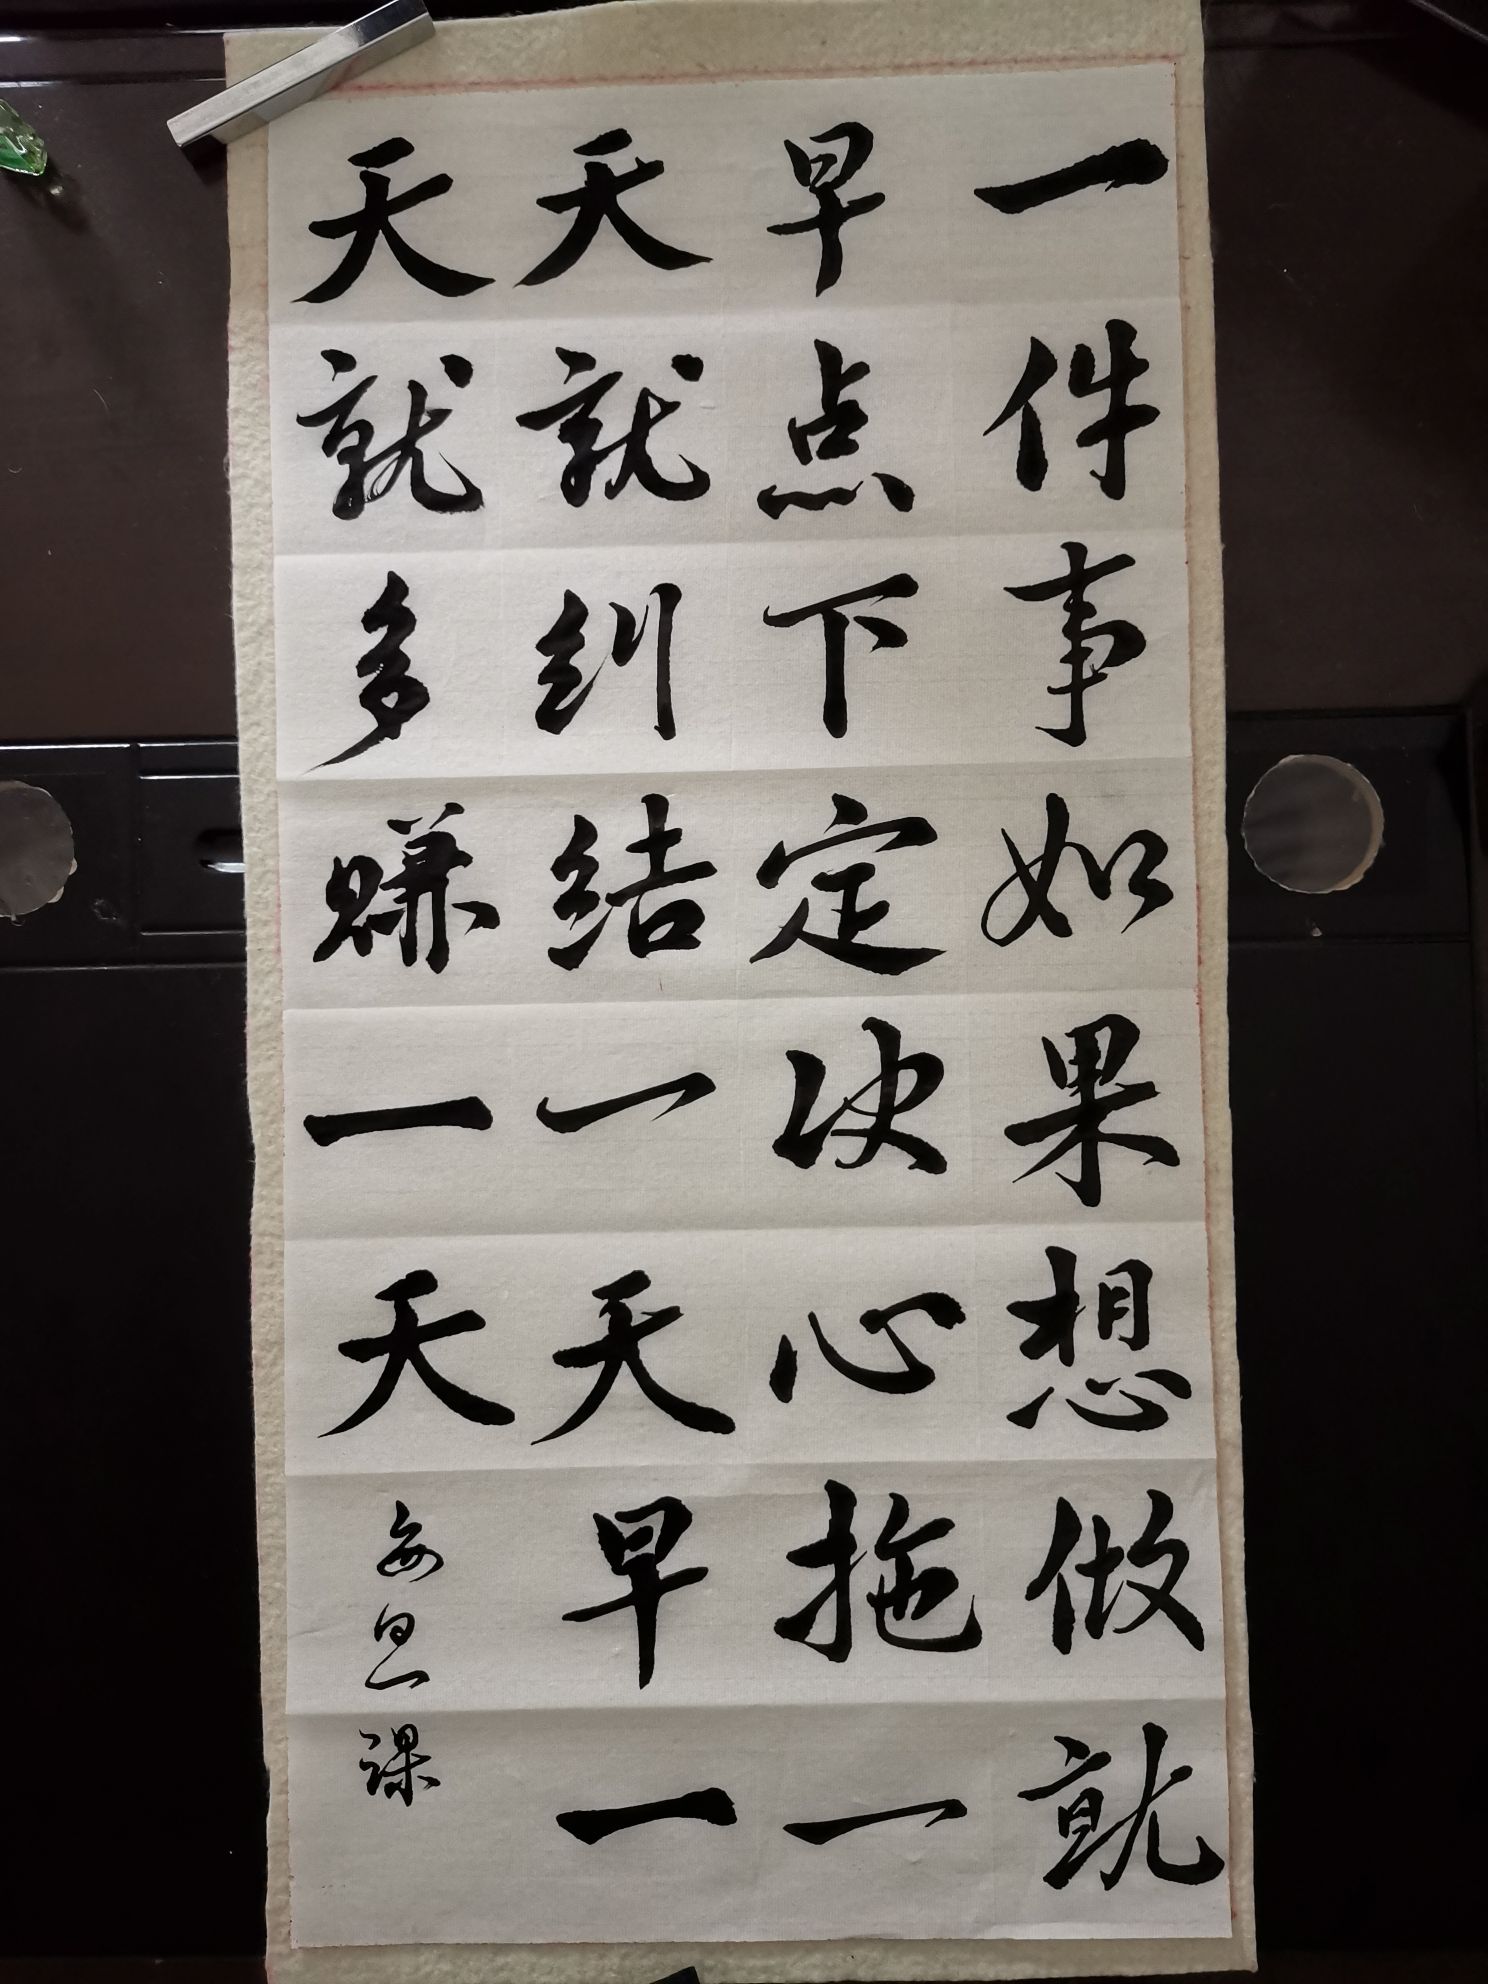 一件事如果想做就
早点下定决心拖一
天就纠结一天早一
天就多赚一天
每日一课